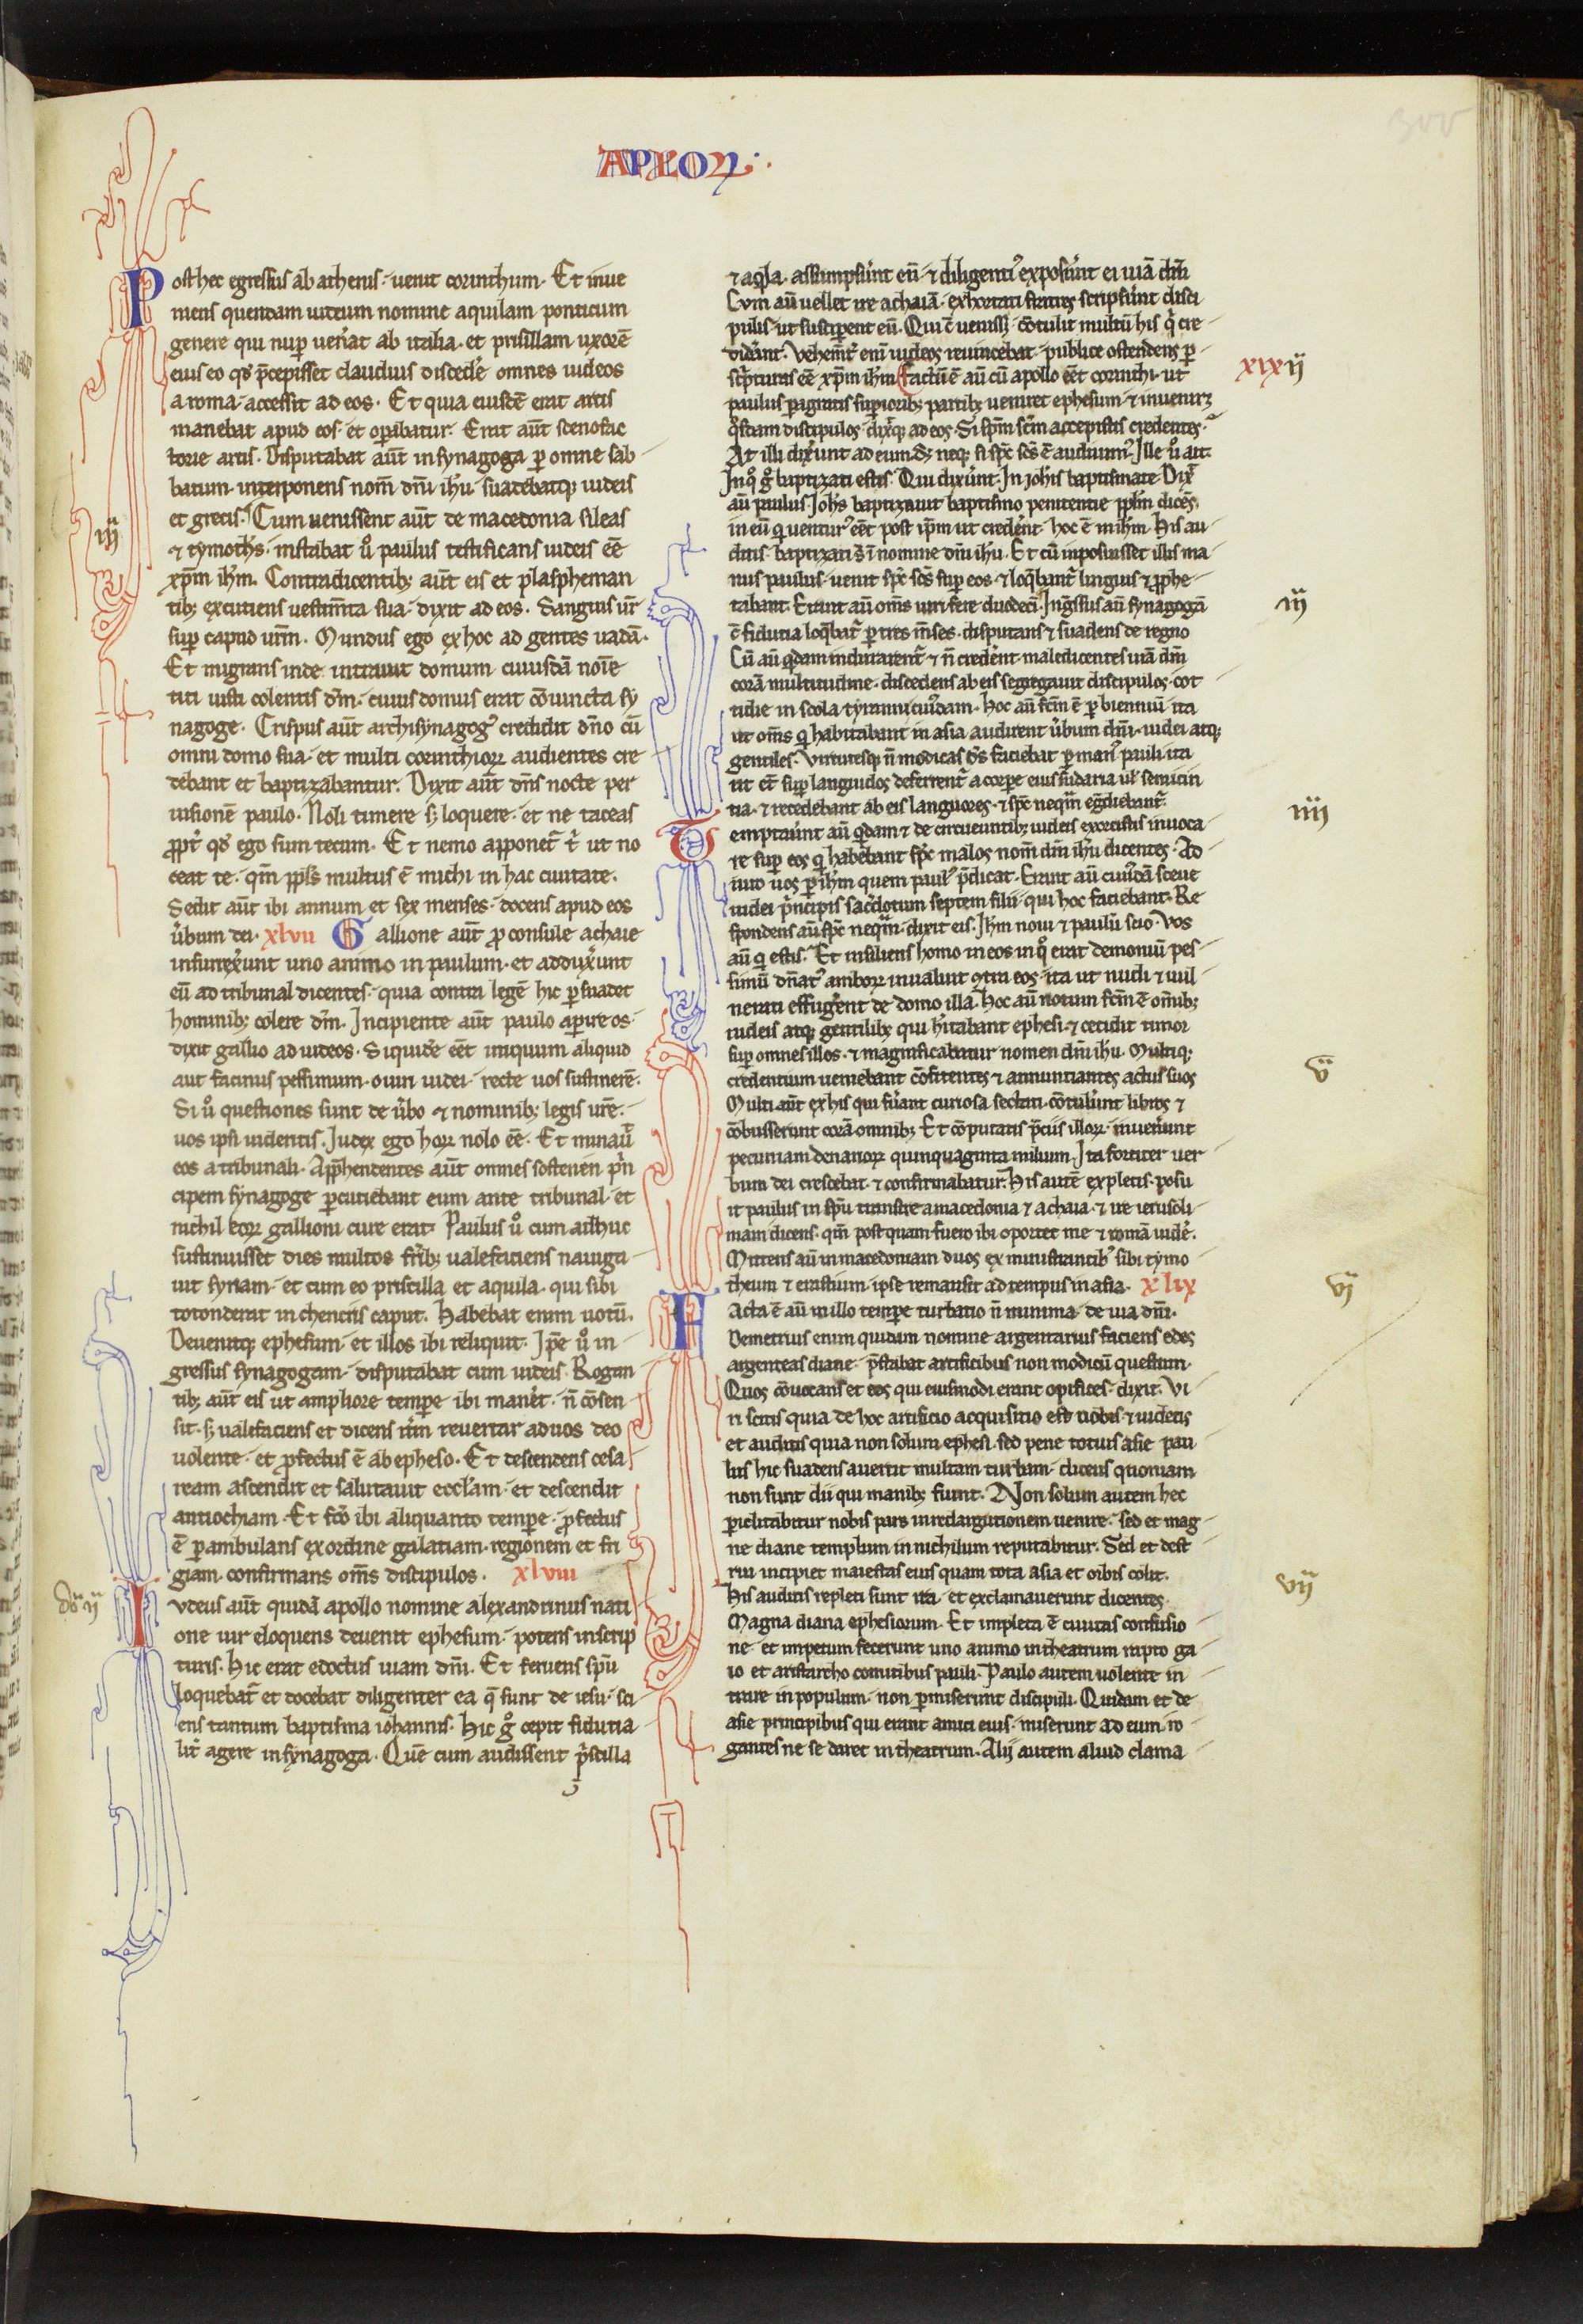 APLOꝜ
300
Post hec egressus ab athenis· uenit corinthum· Et inue
niens quendam iudeum nomine aquilam ponticum
genere qui nuꝑ uen̄at ab italia· et prisillam uxorē
eius eo qđ p̄cepisset claudius discede̾ omnes iudeos
a roma· accessit ad eos· Et quia eiusdē erat artis
manebat apud eos· et oꝑabatur· Erat aūt scenofac
torie artis· Disputabat aūt in synagoga ꝑ omne sab
batum· interponens nom̄ dn̄i ih̄u· suadebatqꝫ iudeis
et grecis· Cum uenissent aūt de macedonia sileas
iij
⁊ tymoth̄s· instabat u̾o paulus testificans iudeis eē̄
xp̄m ih̄m· Contradicentibꝫ aūt eis et plaspheman
tibꝫ excutiens uestim̄ta sua· dixit ad eos· Sanguis ur̄
suꝑ capud ur̄m· Mundus ego ex hoc ad gentes uadā·
Et migrans inde intrauit domum cuiusdā noı̄e
titi iusti colentis dm̄· cuius domus erat cōiuncta sy
nagoge· Crispus aūt archisynagogꝰ credidit dn̄o cū
omni domo sua· et multi corinthioꝝ audientes cre
debant et baptizabantur· Dixit aūt dn̄s nocte per
uisionē paulo· Noli timere sꝫ loquere· et ne taceas
ꝓpt̄ qđ ego sum tecum· Et nemo apponet̄ t̄ ut no
ceat te· qm̄ ppl̄s multus ē michi in hac ciuitate·
Sedit aūt ibi annum et sex menses· docens apud eos
u̾bum dei· xlvii Gallione aūt ꝓconsule achaie
insurrex̄unt uno animo in paulum· et addux̄unt
eū ad tribunal dicentes· quia contra legē hic ꝑsuadet
hominibꝫ colere dm̄· Incipiente aūt paulo aꝑire os·
dixit gallio ad iudeos· Siquidē eēt iniquum aliquid
aut facinus pessimum· o uiri iudei· recte uos sustinerē·
Si u̾o questiones sunt de u̾bo ⁊ nominibꝫ legis ur̄e·
uos ipsi uideritis· Iudex ego hoꝝ nolo eē̄· Et minau̾
eos a tribunali· Appͬhendentes aūt omnes sostenen pͥn
cipem synagoge ꝑcutiebant eum ante tribunal· et
nichil eoꝝ gallioni cure erat· Paulus u̾o cum adhuc
sustinuisset dies multos fr̄ibꝫ ualefaciens nauiga
uit syriam· et cum eo priscilla et aquila· qui sibi
totonderat in chencris caput· Habebat enim uotū·
Deuenitqꝫ ephesum· et illos ibi reliquit· Ipse u̾o in
gressus synagogam· disputabat cum iudeis· Rogan
tibꝫ aūt eis ut ampliore temꝑe ibi man̄et· n̄ cōsen
sit· sꝫ ualefaciens et dicens it̄m reuertar ad uos deo
uolente· et ꝓfectus ē ab epheso· Et descendens cesa
ream ascendit et salutauit eccl̄am· et descendit
antiochiam· Et fc̄o ibi aliquanto temꝑe· ꝓfectus
ē ꝑambulans ex ordine galatiam· regionem et fri
giam· confirmans om̄s discipulos· xlviii
Iudeus aūt quidā apollo nomine alexandrinus nati
one uir eloquens deuenit ephesum· potens in scrip
turis· Hic erat edoctus uiam dn̄i· Et feruens spū
loquebat̄ et docebat diligenter ea q̄ sunt de iesu· sci
ens tantum baptisma iohannis· Hic gͦ cepit fiducia
lit̄ agere in synagoga· Quē cum audissent pͥscilla
⁊ aqͥla· assumpser̄unt eū· ⁊ diligentiꝰ exposūnt ei uiā dn̄i
Cvm aū uellet ire achaiā· exhortati fratres scripsūnt disci
pulis· ut susciꝑent eū· Qui c̄ uenissꝫ· cōtulit multū his qͥ cre
did̄ant· Vehem̄t̄ eni̅ iudeos reuincebat· publice ostendens ꝑ
sc̄pturas eē̄ xp̄m ih̄m Factū ē aū cū apollo eēt corinthi· ut
xix ij
paulus ꝑagratis suꝑioribꝫ partibꝫ ueniret ephesum· ⁊ inueniret
qͦsdam discipulos· dixͥtqꝫ ad eos· Si spm̄ sc̄m accepistis credentes·
At illi dix̄unt ad eum· Sꝫ neqꝫ si spc̄ sc̄s ē audiuimꝰ· Ille u̾o ait·
In qͦ gͦ baptizati estis· Qui dix̄unt· In joh̄is baptismate· Dix̄
aū paulus· Joh̄s baptizauit baptismo penitentie ppl̄m dicēs·
in eū qͥ uenturꝰ eēt post ip̄m ut cred̄ent· hoc ē in ih̄m· His au
ditis· baptizati s̄t ı̄ nomine dn̄i ih̄u· Et cū inposuisset illis ma
nus paulus· uenit spc̄ sc̄s suꝑ eos· ⁊ loq̄bant̄ linguis ⁊ ꝓphe
tabant· Erant aū om̄s uiri fere duodeci̅· Ingͬssus aū synagogā
iij
c̄ fiducia loq̄bat̄ ꝑ tres m̄ses· disputans ⁊ suadens de regno
Cū aū qͥdam indurarent̄· ⁊ n̄ cred̄ent· maledicentes uiā dn̄i
corā multitudine· discedens ab eis segregauit discipulos· cot
tidie in scola tyranni cuiꝰdam· Hoc aū fc̄m ē ꝑ bienniū· ita
ut om̄s qͥ habitabant in asia audirent u̾bum dn̄i· iudei atqꝫ
gentiles· Virtutesqꝫ n̄ modicas dı̄s faciebat ꝑ manꝰ pauli· ita
ut et̄ suꝑ languidos deferrent̄ a corꝑe eius sudaria ul̄ semicin
tia· ⁊ recedebant ab eis languores· ⁊ spc̄ neqͣm egͬdiebant̄·
Temptaūnt aū qͥdam ⁊ de circueuntibꝫ iudeis exorcistis inuoca
iiij
re suꝑ eos qͥ habebant spc̄ malos nom̄ dn̄i ih̄u dicentes· Ad
iuro uos ꝑ ih̄m quem paulꝰ p̄dicat· Erant aū cuiꝰdā sceue
iudei pͥncipis sac̄dotum septem filii· qui hoc faciebant· Re
spondens aū spc̄ neqͣm· dixit eis· Ih̄m noui ⁊ paulū scio· Vos
aū qͥ estis· Et insiliens homo in eos in qͦ erat demoniū pes
simū dn̄atꝰ amboꝝ inualuit ꝯtra eos· ita ut nudi ⁊ uul
nerati effug̾ent de domo illa· Hoc aū notum fc̄m ē om̄ibꝫ
iudeis atqꝫ gentilibꝫ qui h̾itabant ephesi· ⁊ cecidit timor
suꝑ omnes illos· ⁊ magnificabatur nomen dn̄i ih̄u· Multiqꝫ
v
credentium ueniebant cōfitentes ⁊ annuntiantes actus suos
Multi aūt ex his qui fūant curiosa sectati· cōtul̄unt libros ⁊
cōbusserunt corā omnibꝫ· Et cōputatis p̄ciis illoꝝ· inuen̄unt
pecuniam denarioꝝ quinquaginta milium· Ita fortiter uer
bum dei crescebat ⁊ confirmabatur· His autē expletis· posu
it paulus in spū transire a macedonia ⁊ achaia· ⁊ ire ierusoli
mam dicens· qm̄ postquam fuero ibi oportet me ⁊ romā uide̾·
Mittens aū in macedoniam duos ex ministrantibꝰ sibi tymo
theum ⁊ erastium· ipse remansit ad tempus in asia· xlix
vj
Facta ē aū in illo temꝑe turbatio n̄ minima· de uia dn̄i·
Demetrius enim quidam nomine argentarius faciens edes
argenteas diane· p̄stabat artificibus non modicū questum·
Quos cōuocans et eos qui eiusmodi erant opifices· dixit· Vi
ri scitis quia de hoc artificio acquisitio est nobis· ⁊ uidetis
et auditis quia non solum ephesi· sed pene totius asie pau
lus hic suadens auertit multam turbam· dicens quoniam
non sunt dii qui manibꝫ fiunt· Non solum autem hec
ꝑiclitabitur nobis pars in redargutionem uenire· sed et mag
ne diane templum in nichilum reputabitur· Sed et dest
rui incipiet maiestas eius quam tota asia et orbis colit·
vij
His auditis repleti sunt ira· et exclamauerunt dicentes·
Magna diana ephesiorum· Et impleta ē ciuitas confusio
ne· et impetum fecerunt uno animo in theatrum rapto ga
io et aristarcho comitibus pauli· Paulo autem uolente in
trare in populum· non ꝑmiserunt discipuli· Quidam et de
asie principibus qui erant amici eius· miserunt ad eum ro
gantes ne se daret in theatrum· Alij autem aliud clama